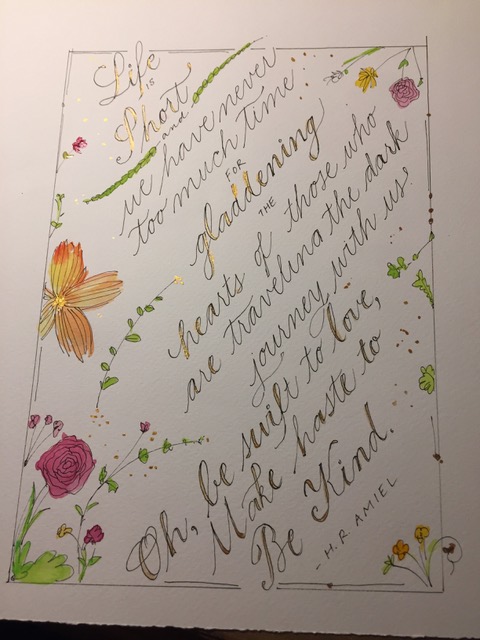 Life
is
Short
and
we have never
too much time
FOR
gladdening
THE
hearts of those who
are traveling the dark
journey with us.
Oh, be swift to love,
Make haste to
Be Kind.
- H.R. AMIEL